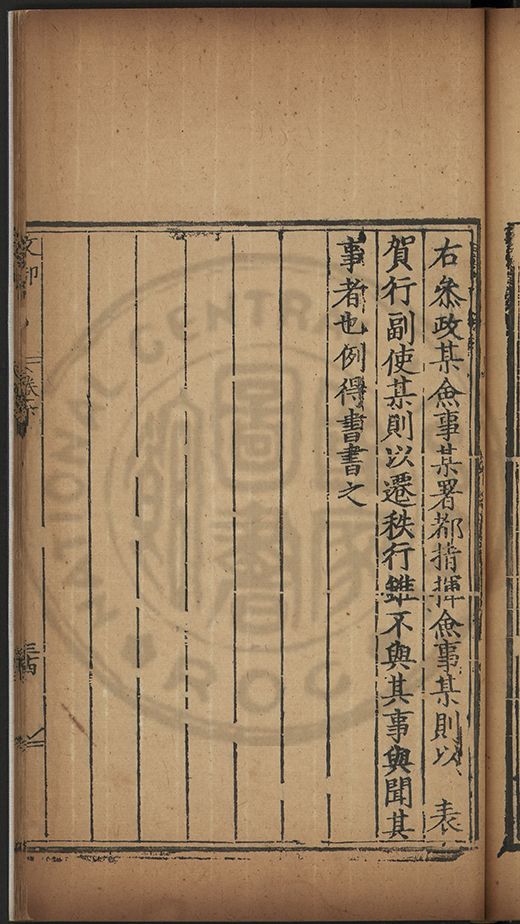 右叅政某僉事某署都指揮僉事某則以　表
賀行副使某則以遷秩行雖不與其事與聞其
事者也例得書書之